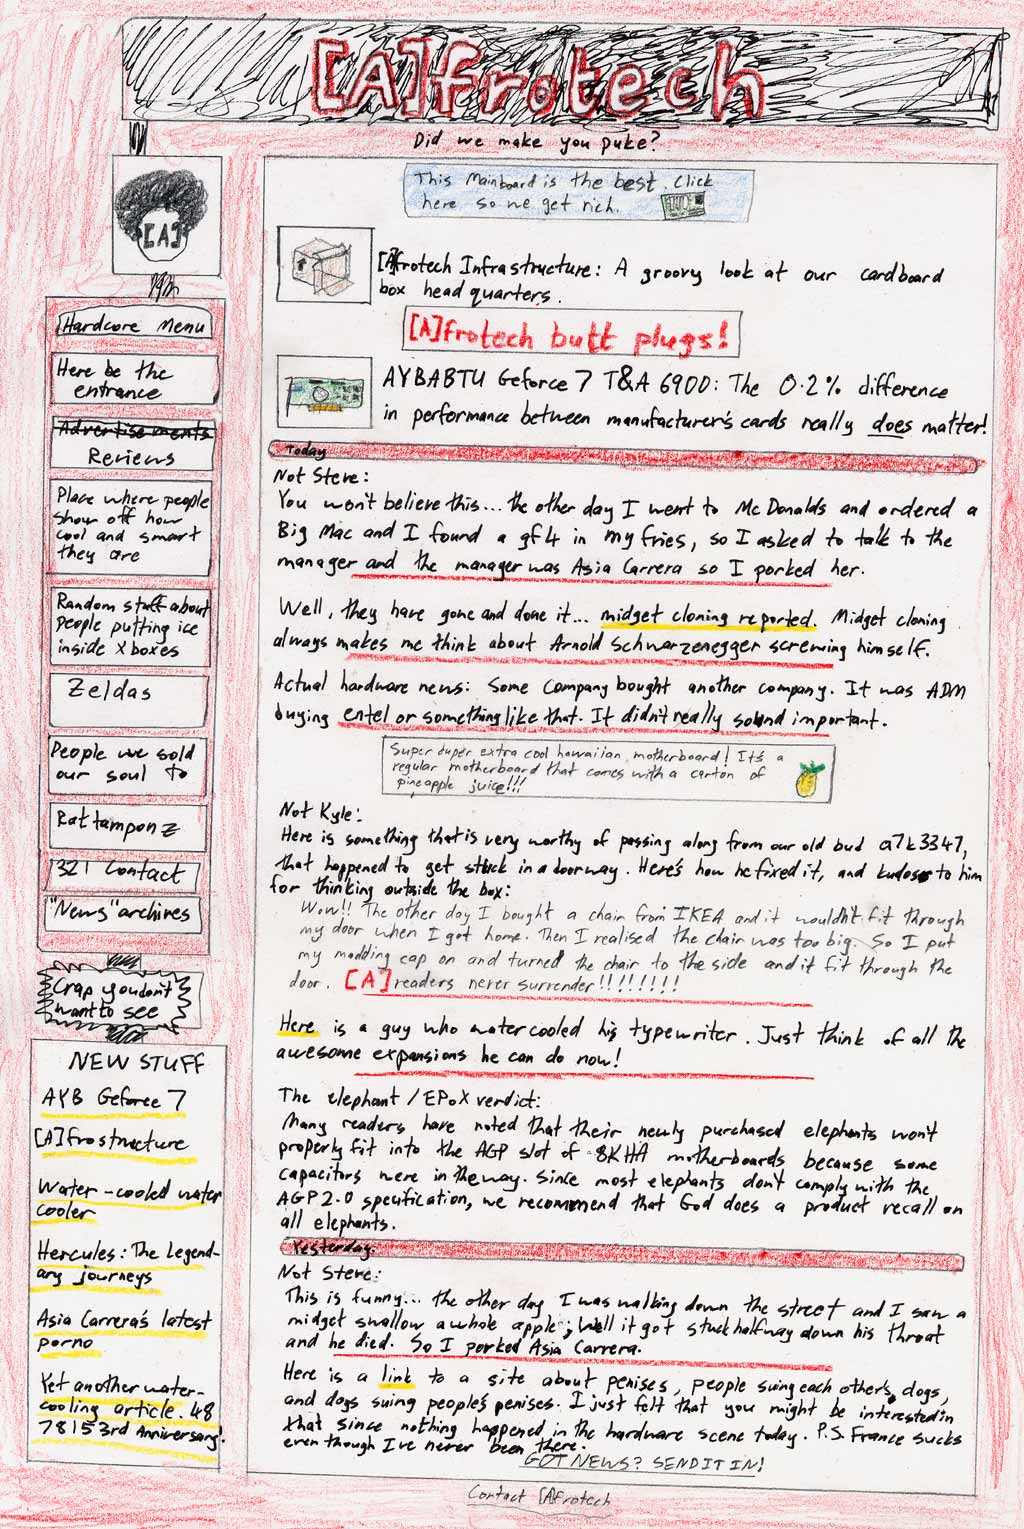 [A]frotech
Did we make you puke?
[A]
Hardcore Menu
Here be the
entrance
Advertisements
Reviews
Place where people
show off how
cool and smart
they are
Random stuff about
people putting ice
inside Xboxes
Zeldas
People we sold
our soul to
Rattamponz
321 Contact
"News" archives
Crap you don't
want to see
NEW STUFF
AYB Geforce 7
[A]frostructure
Water-cooled water
cooler
Hercules: The Legend-
ary journeys
Asia Carrera's latest
porno
Yet another water-
cooling article. 48
78153rd Anniversary!
This Mainboard is the best. Click
here so we get rich.
[A]frotech Infrastructure: A groovy look at our cardboard
box headquarters.
[A]frotech butt plugs!
AYBABTU Geforce 7 T&A 6900: The 0.2% difference
in performance between manufacturer's cards really does matter!
Today
Not Steve:
You won't believe this... the other day I went to McDonalds and ordered a
Big Mac and I found a gf4 in my fries, so I asked to talk to the
manager and the manager was Asia Carrera so I porked her.
Well, they have gone and done it... midget cloning reported. Midget cloning
always makes me think about Arnold Schwarzenegger screwing himself.
Actual hardware news: Some Company bought another company. It was ADM
buying entel or something like that. It didn't really sound important.
Super duper extra cool hawaiian motherboard! It's a
regular motherboard that comes with a carton of
pineapple juice!!!
Not Kyle:
Here is something that is very worthy of passing along from our old bud a7k3347,
that happened to get stuck in a doorway. Here's how he fixed it, and kudos to him
for thinking outside the box:
Wow!! The other day I bought a chair from IKEA and it wouldn't fit through
my door when I got home. Then I realised the chair was too big. So I put
my modding cap on and turned the chair to the side and it fit through the
door. [A] readers never surrender!!!!!!!!
Here is a guy who watercooled his typewriter. Just think of all the
awesome expansions he can do now!
The elephant / EPoX verdict:
Many readers have noted that their newly purchased elephants won't
properly fit into the AGP slot of 8KHA motherboards because some
capacitors were in the way. Since most elephants don't comply with the
AGP 2.0 specification, we recommend that God does a product recall on
all elephants.
Yesterday
Not Steve:
This is funny... the other day I was walking down the street and I saw a
midget swallow a whole apple; Well it got stuck halfway down his throat
and he died. So I porked Asia Carrera.
Here is a link to a site about penises, people suing each other's, dogs,
and dogs suing people's penises. I just felt that you might be interested in
that since nothing happened in the hardware scene today. P.S. France sucks
even though I've never been there.
GOT NEWS? SEND IT IN!
Contact [A]frotech